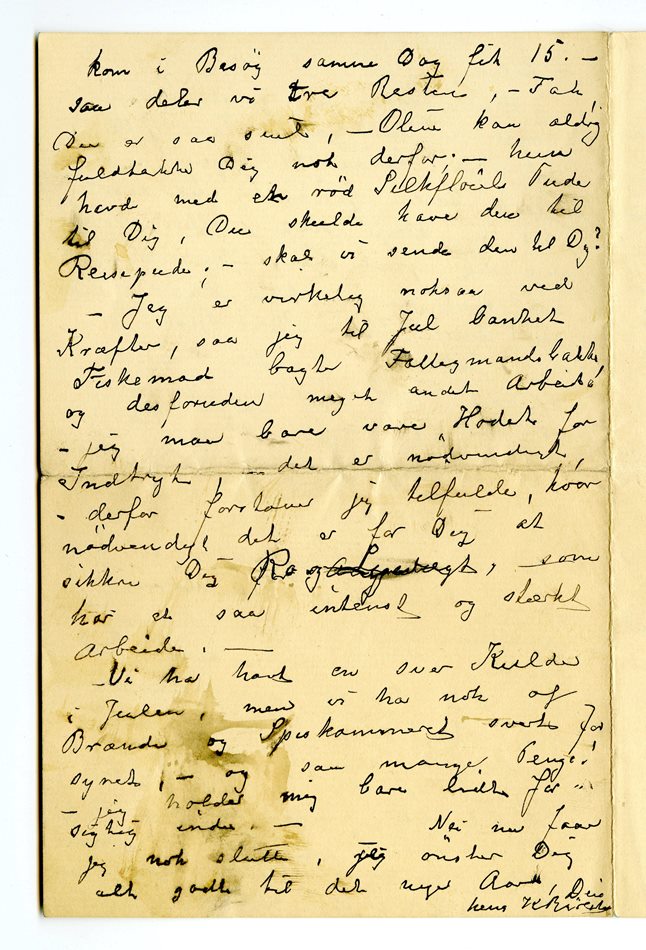 kom i Besøg samme Dag fik 15. –
saa deler vi tre Resten, – Tak,
Du er saa snil, – Oline kan aldrig
fuldtakke Dig nok derfor; – hun
havd med en rød Silkfløiels Pude
til Dig, Du skulde have den til
Reisepude; – skal vi sende den til Dig?
– Jeg er virkelig noksaa ved
Kræfter, saa jeg til Jul lavket
Fiskemad bagte Fattigmandsbakke
og desforuden meget andet Arbeide!
– jeg maa bare vare Hodet for
Indtryk, det er nødvendigt,
– derfor forstaaer jeg tilfulde, hvor
nødvendigt det er for Dig at
sikkre Dig Ro og, som
har et saa intenst og stærkt
Arbeide. –
– Vi ha havt en svær Kulde
i Julen, men vi ha nok af
Brænde og Spiskammeret svært for
synet, – og saa mange Penge!
– jeg holder mig bare lidt for
sigtig inde. – Nei nu faar
jeg nok slutte, jeg ønsker Dig
alt godt til det nye Aar, Din